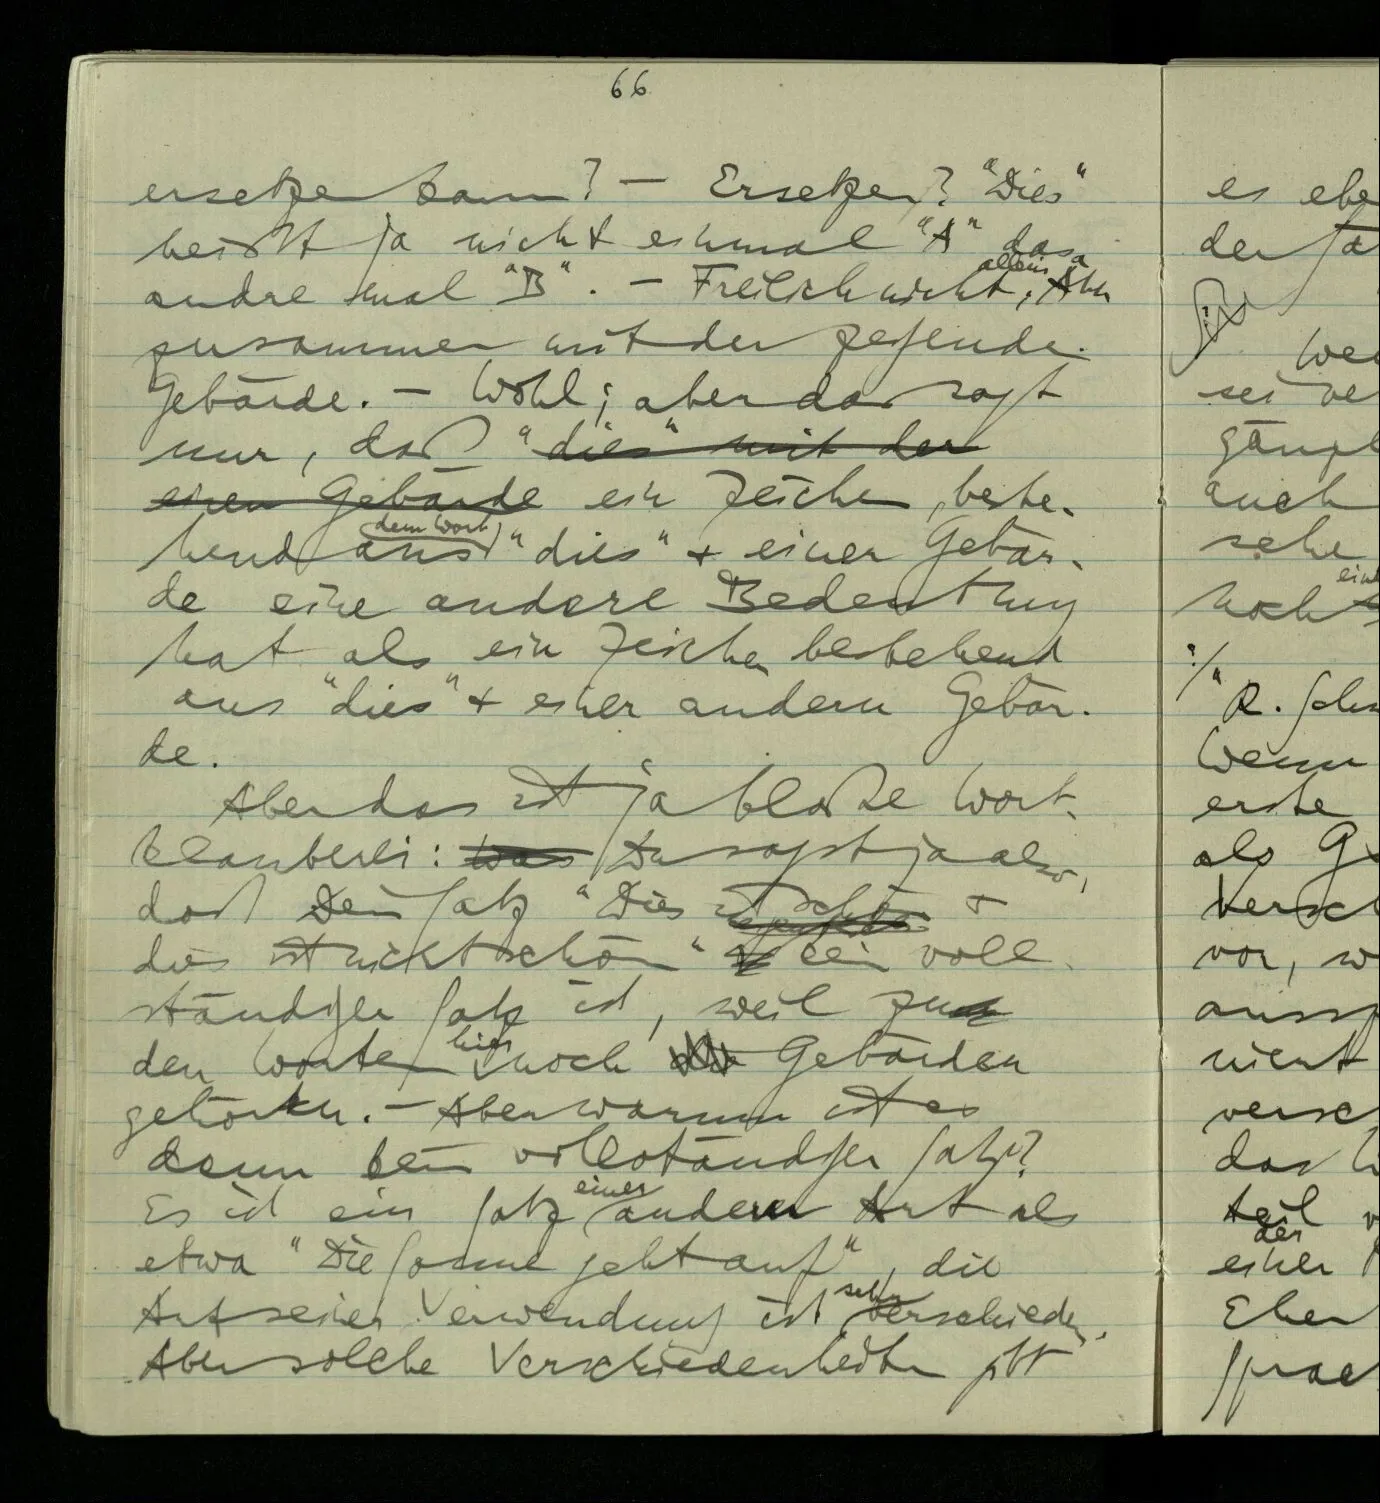 66
ersetzen kann? — Ersetzen? "Dies"
heißt ja nicht einmal "A" das
andre mal "B". — Freilich nicht allein; aber
zusammen mit der zeigenden
Gebärde. — Wohl; aber das sagt
nur, daß "dies" mit der
einen Gebärde ein Zeichen, beste-
hend aus dem Wort "dies" + einer Gebär-
de eine andere Bedeutung
hat als ein Zeichen bestehend
aus "dies" + einer andern Gebär-
de.
Aber das ist ja bloße Wort-
klauberei: Was Du sagst ja also,
daß Dein Satz "Dies ist schön +
dies ist nicht schön" kein voll-
ständiger Satz ist, weil zu
den Worten hier noch die Gebärden
gehören. — Aber warum ist es
dann kein vollständiger Satz?
Es ist ein Satz einer andern Art als
etwa "Die Sonne geht auf", die
Art seiner Verwendung ist sehr verschieden.
Aber solche Verschiedenheiten gibt
es ebe
der Sä
Wen
sei ve
gängl
auch
sehe
noch ein
R. Schu
Wenn
erste
als G
versch
vor, w
aussp
nicht
versc
das W
teil v
der
einer
Eher
Sprac